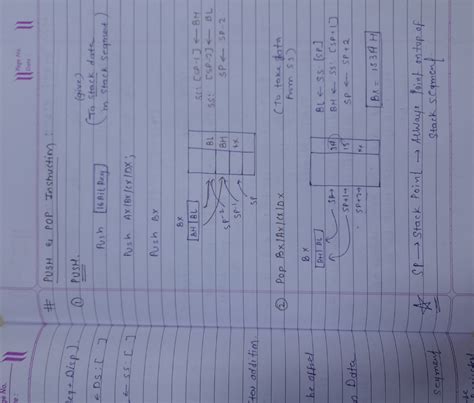 # PUSH & POP Instruction :
① PUSH. (give)
(To Stack data
in Stack Segment)
Push [16 Bit Reg]
Push Ax/Bx/Cx/Dx;
Push Bx
SS: [SP-1] ← BH
SS: [SP-2] ← BL
SP ← SP-2
Bx
[BH|BL]
BL
BH
xx
SP-2
SP-1
SP
② Pop Bx/Ax/Cx/Dx
(To take data
from SS)
BL ← SS [SP]
BH ← SS: [SP+1]
SP ← SP+2
Bx
SP→
SP+1→
SP+2→
xx
☆ SP → Stack Point → Always Point on top of
Stack segment
Page No.
Date
eg + Disp]
← DS: [ ]
← SS: [ ]
addition.
be offset
Data
segment
Page No.